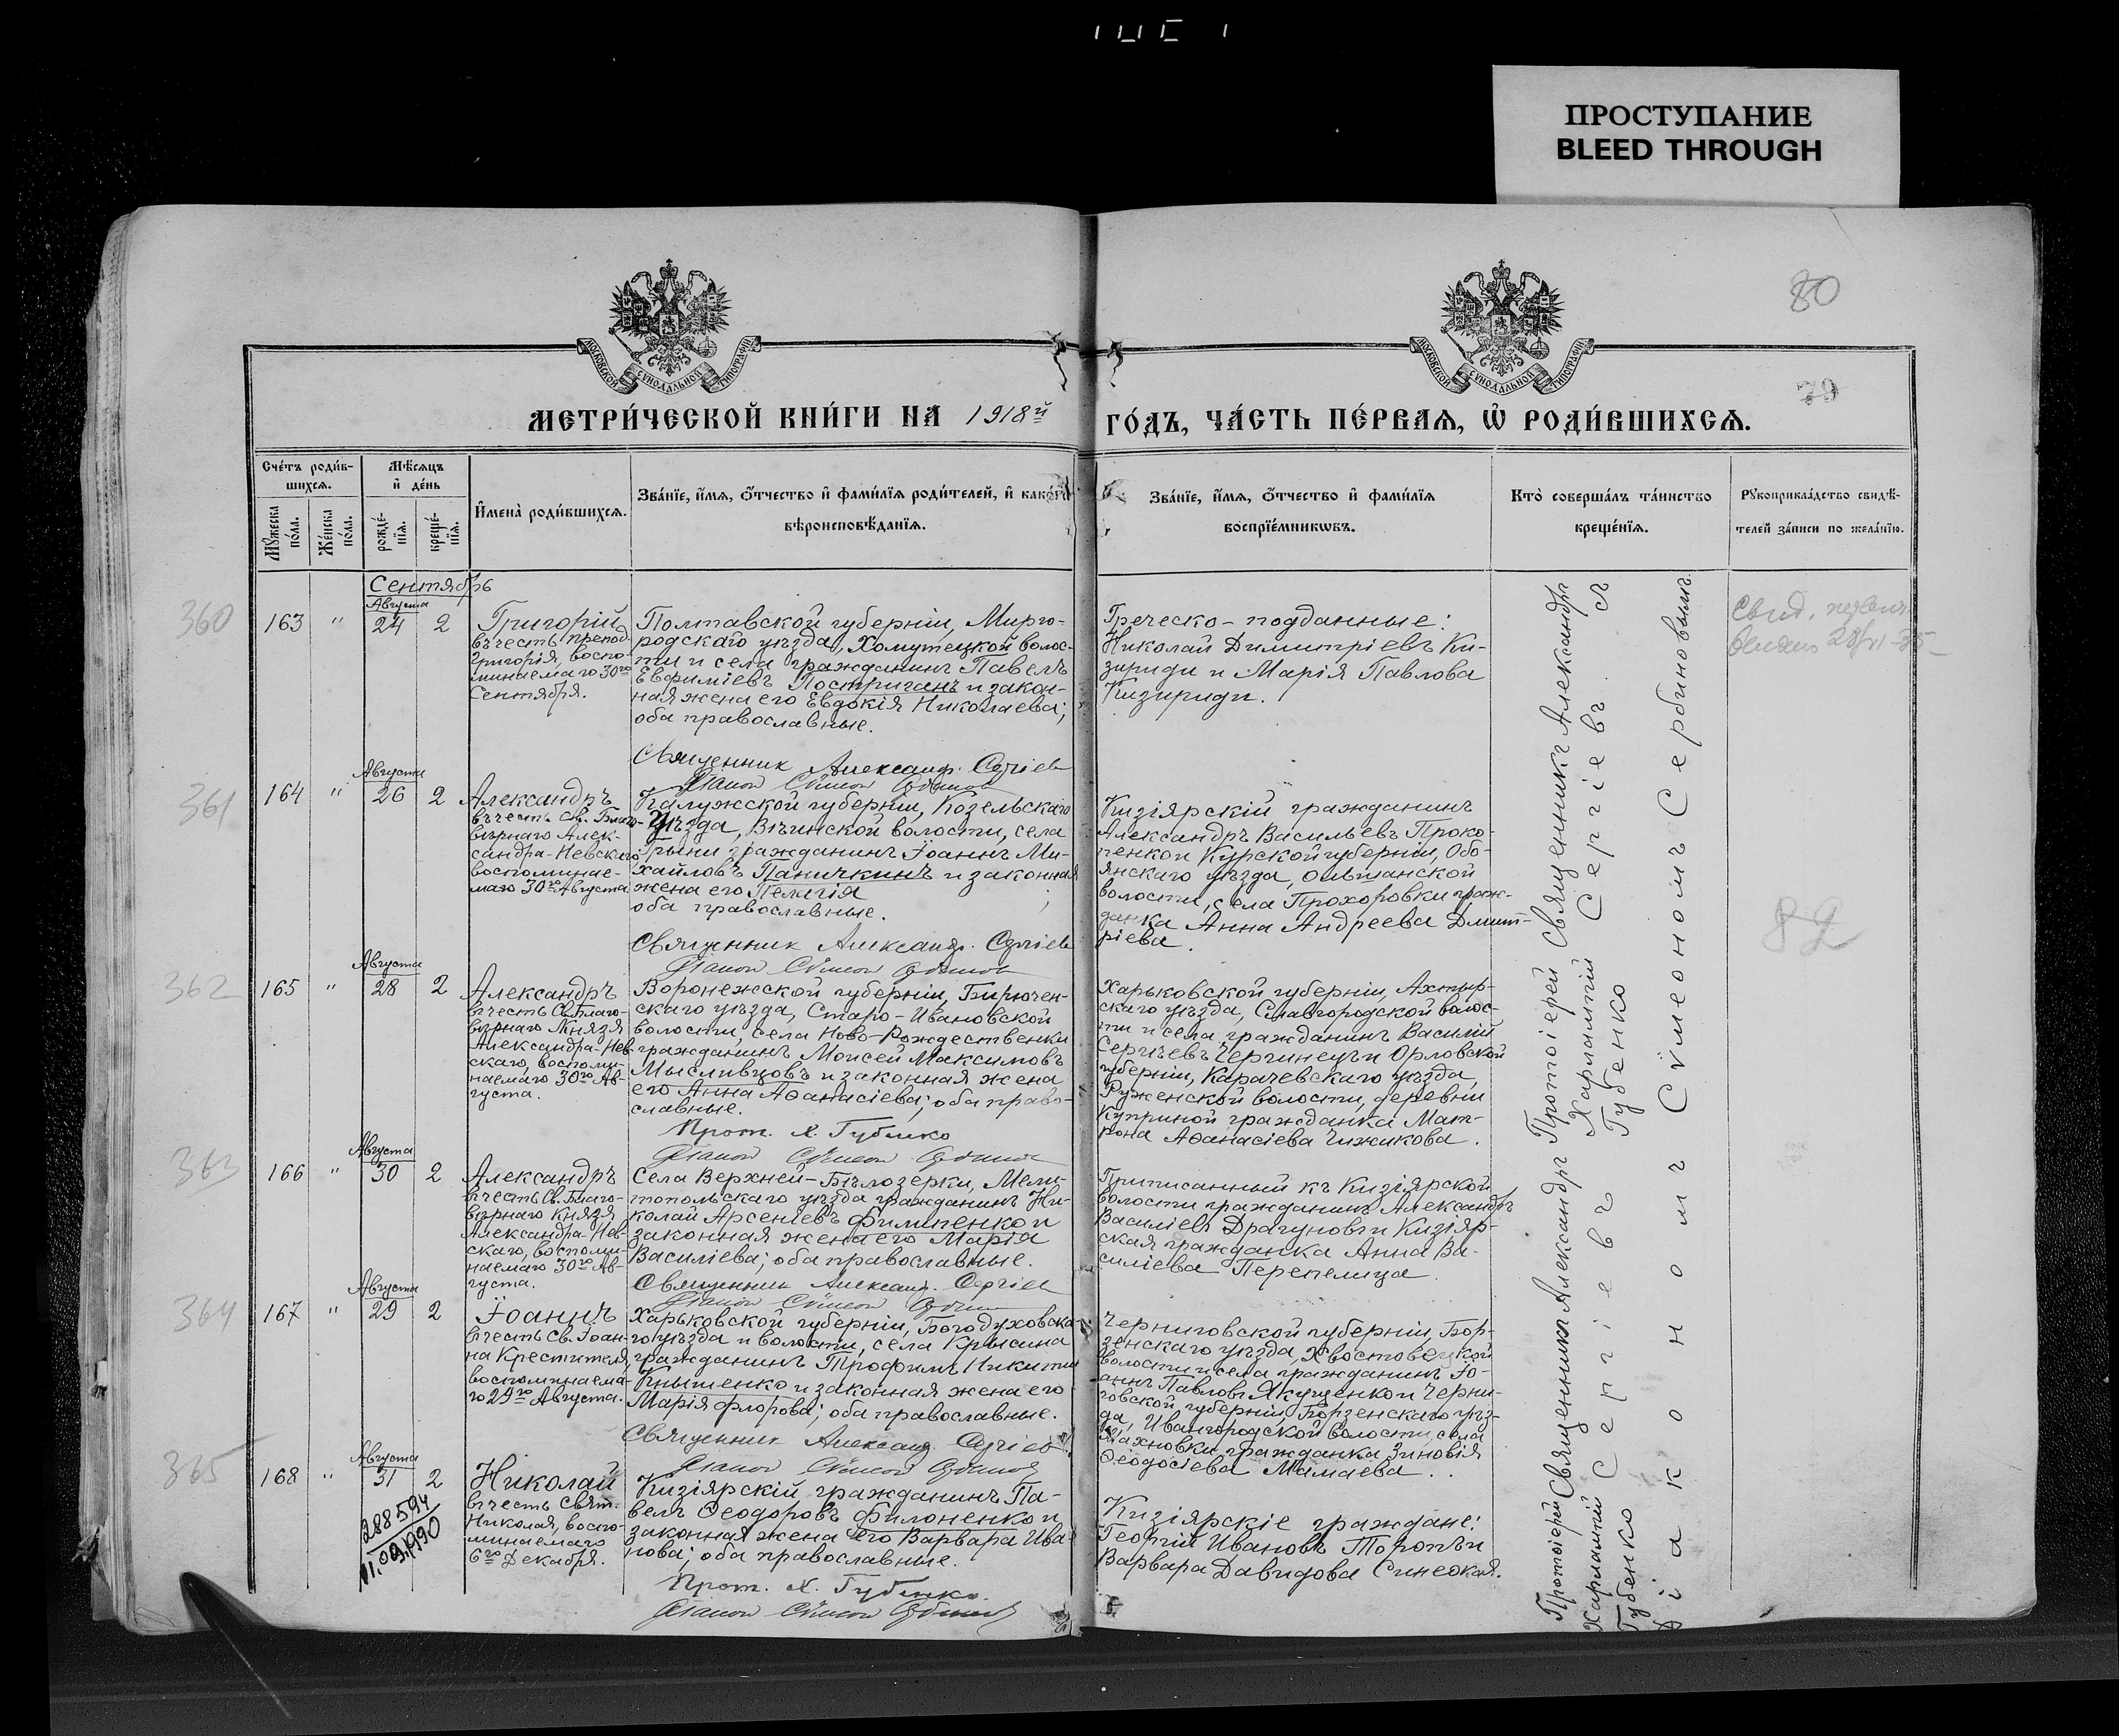 ПРОСТУПАНИЕ
BLEED THROUGH
80
79
МОСКОВСКОЙ СѴНОДАЛЬНОЙ ТИПОГРАФІИ
МОСКОВСКОЙ СѴНОДАЛЬНОЙ ТИПОГРАФІИ
МЕТРИ́ЧЕСКОЙ КНИ́ГИ НА 1918й ГО́ДЪ, ЧА́СТЬ ПЕ́РВАѦ, Ѡ РОДИ́ВШИХСѦ.
Сче́тъ роди́в-
шихсѧ.
Мѣсѧцъ
и҆ де́нь
Му́жеска по́ла.
Же́нска по́ла.
рожде́-
нїѧ.
креще́-
нїѧ.
И҆мена̀ роди́вшихсѧ.
Зва́нїе, и҆́мѧ, ѻ҆́тчество и҆ фами́лїѧ роди́телей, и҆ како́гѡ
вѣроисповѣ́данїѧ.
Зва́нїе, и҆́мѧ, ѻ҆́тчество и҆ фами́лїѧ
воспрїе́мникѡвъ.
Кто̀ соверша́лъ та́инство
креще́нїѧ.
Рꙋкоприкла́дство свидѣ́-
телей за́писи по жела́нїю.
Сентябрь
360
163 " Августа 24 2
Григорій
въ честь препод.
Григорія, воспо-
минаемаго 30го
Сентября.
Полтавской губерніи, Мирго-
родскаго уѣзда, Хомутецкой волос-
ти и села гражданинъ Павелъ
Евфиміевъ Постриганъ и закон-
ная жена его Евдокія Николаева;
оба православные.
Священник Александр. Сергіев
Діакон Сѵмеон
Греческо-подданные:
Николай Димитріевъ Ки-
зириди и Марія Павлова
Кизириди.
Свид.
361
164 " Августа 26 2
Александръ
въ честь Св. Благо-
вѣрнаго Алек-
сандра-Невскаго,
воспоминае-
маго 30го Августа.
Калужской губерніи, Козельскаго
уѣзда, Вѣинской волости, села
гражданинъ Іоаннъ Ми-
хайловъ Паничкинъ и законная
жена его Пелагія ;
оба православные.
Священник Александр. Сергіев
Діакон Сѵмеон
Кизіярскій гражданинъ
Александръ Васильевъ Проко-
пенко и Курской губерніи, Обо-
янскаго уѣзда, Ольшанской
волости, села Прохоровки граж-
данка Анна Андреева Дмит-
ріева.
82
362
165 " Августа 28 2
Александръ
въ честь Св. Благо-
вѣрнаго Князя
Александра-Нев-
скаго, воспоми-
наемаго 30го Ав-
густа.
Воронежской губерніи, Бирючен-
скаго уѣзда, Старо-Ивановской
волости, села Ново-Рождественки
гражданинъ Моисей Максимовъ
Мысливцовъ и законная жена
его Анна Аѳанасіева; оба право-
славные.
Прот. Х. Губенко
Діакон Сѵмеон
Харьковской губерніи, Ахтыр-
скаго уѣзда, Славгородской волос-
ти и села гражданинъ Василій
Сергѣевъ и Орловской
губерніи, Карачевскаго уѣзда,
Руженской волости, деревни
Куприной гражданка Мат-
рона Аѳанасіева Чижикова.
363
166 " Августа 30 2
Александръ
въ честь Св. Благо-
вѣрнаго Князя
Александра-Нев-
скаго, воспоми-
наемаго 30го Ав-
густа.
Села Верхней-Бѣлозерки, Мели-
топольскаго уѣзда гражданинъ Ни-
колай Арсеніевъ Филипенко и
законная жена его Марія
Василіева; оба православные.
Священник Александр. Сергіев
Діакон Сѵмеон
Приписанный къ Кизіярской
волости гражданинъ Александръ
Василіевъ Драгуновъ и Кизіяр-
ская гражданка Анна Ва-
силіева Перепелица.
364
167 " Августа 29 2
Іоаннъ
въ честь Св. Іоан-
на Крестителя,
воспоминаема-
го 29го Августа.
Харьковской губерніи, Богодуховска-
го уѣзда и волости, села Крысина
гражданинъ Трофимъ Никитинъ
Кнышенко и законная жена его
Марія Флорова; оба православные.
Священник Александр. Сергіев
Діакон Сѵмеон
Черниговской губерніи, Бор-
зенскаго уѣзда, Хвостовецкой
волости и села гражданинъ Іо-
аннъ Павловъ Якущенко и Черни-
говской губерніи, Борзенскаго уѣз-
да, Ивангородской волости, села
Махновки гражданка Зиновія
Ѳеодосіева Мамаева.
365
168 " Августа 31 2
Николай
въ честь Свят.
Николая, воспо-
минаемаго
6го Декабря.
Кизіярскій гражданинъ Па-
велъ Ѳеодоровъ Филоненко и
законная жена его Варвара Ива-
нова; оба православные.
Прот. Х. Губенко.
Діакон Сѵмеон
Кизіярскіе граждане:
Георгій Ивановъ Торопъ и
Варвара Давидова Синеокая.
288594
11.09.1990
Протоіерей Священникъ Александръ Протоіерей Священникъ Александръ
Харлампій Сергіевъ Харлампій Сергіевъ съ
Губенко Губенко
Діакономъ Сѵмеономъ Сербиновымъ.